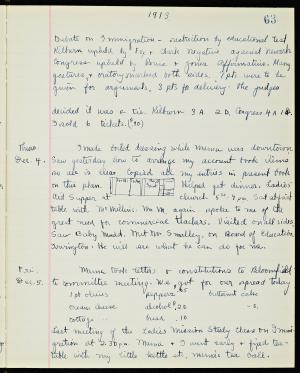 1913
63
Debate on Immigration - restriction by educational test
Kilburn upheld by Fox & Clark negative
Congress upheld by & Jones affirmative. Many
gestures & oratory marked both sides. 7 pts. were to be
given for arguments, 3 pts for delivery. The judges
decided it was a tie. Kilburn 3 A. 2 D, Congress 4 A 1 D.
I sold 6 tickets.
Thurs.
Dec. 4.
I made boiled dressing while Mama was downtown
Saw yesterday how to arrange my account book
as are clear. Copied all my entries in present book
on this plan. Helped get dinner. Ladies'
Aid Supper at church. Sat at
table with Mr. again spoke to me of the
great need for commercial teachers. Visited on all sides
Saw Baby Mudd. Met Mr. Smilley, on Board of Education
Irvington. He will see what he can do for me.
Fri.
Dec. 5.
Mama took letters & constitutions to Bloomfield
to committee meeting. We got for our spread today
1 qt. olives peppers butternut cake
cream cheese alcohol .20
cottage " bread .10
Last meeting of the Ladies Mission Study class on Immi
gration at 2.30 p.m. Mama & I went early & fixed tea-
table with my little kettle set, Mama's tea ball.